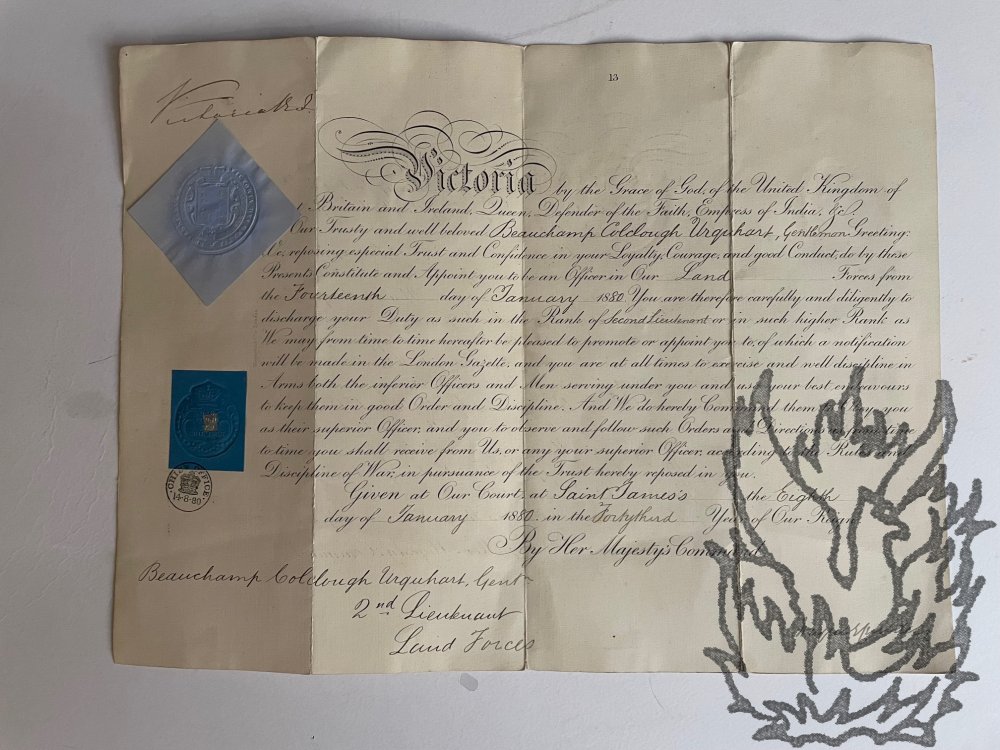 13
Victoria R. I.
Victoria by the Grace of God, of the United Kingdom of
Britain and Ireland, Queen, Defender of the Faith, Empress of India, &c.
Our Trusty and well beloved Beauchamp Colclough Urquhart, Gentleman Greeting:
We, reposing especial Trust and Confidence in your Loyalty, Courage, and good Conduct, do by these
Presents Constitute and Appoint you to be an Officer in Our Land Forces from
the Fourteenth day of January 1880. You are therefore carefully and diligently to
discharge your Duty as such in the Rank of Second Lieutenant or in such higher Rank as
We may from time to time hereafter be pleased to promote or appoint you to, of which a notification
will be made in the London Gazette, and you are at all times to exercise and well discipline in
Arms both the inferior Officers and Men serving under you and use your best endeavours
to keep them in good Order and Discipline. And We do hereby Command them to Obey you
as their superior Officer, and you to observe and follow such Orders and Directions as from time
to time you shall receive from Us, or any your superior Officer, according to the Rules and
Discipline of War, in pursuance of the Trust hereby reposed in you.
Given at Our Court, at Saint James's the Eighth
day of January 1880 in the Fortythird Year of Our Reign
By Her Majesty's Command
Beauchamp Colclough Urquhart, Gent
2nd Lieutenant
Land Forces
14-6-80